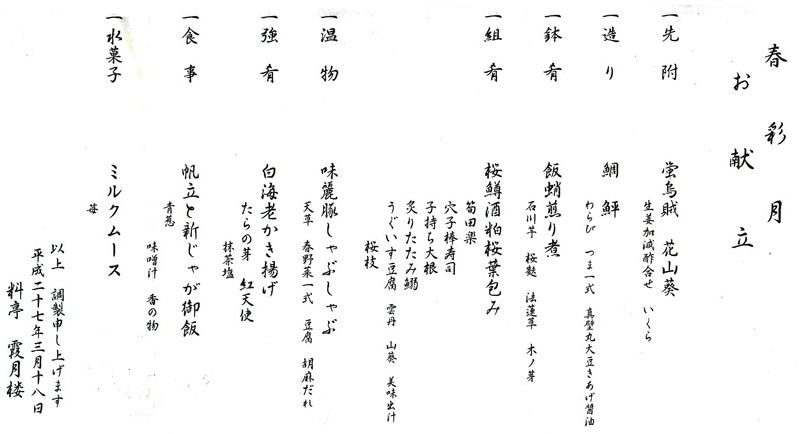 春彩月
お献立
一先附 蛍烏賊 花山葵
生姜加減酢合せ いくら
一造り 鯛 鮃
わらび つま一式 真壁丸大豆きあげ醤油
一鉢肴 飯蛸煎り煮
石川芋 桜麩 法蓮草 木ノ芽
一組肴 桜鱒酒粕桜葉包み
筍田楽
穴子棒寿司
子持ち大根
炙りたたみ鰯
うぐいす豆腐 雲丹 山葵 美味出汁
桜枝
一温物 味麗豚しゃぶしゃぶ
天草 春野菜一式 豆腐 胡麻だれ
一強肴 白海老かき揚げ
たらの芽 紅天使
抹茶塩
一食事 帆立と新じゃが御飯
青葱
味噌汁 香の物
一水菓子 ミルクムース
苺
以上 調製申し上げます
平成二十七年三月十八日
料亭 霞月楼